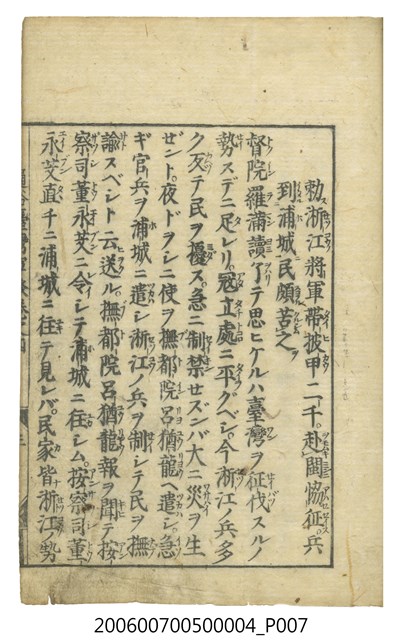 勅浙江將軍帶披甲二千。赴閩恊征。兵
到浦城民頗苦之
督院羅滿讀了テ思ヒケルハ臺灣ヲ征伐スルノ
勢スデニ足レリ。冦立處ニ平グベシ。今浙江ノ兵多
ク反テ民ヲ擾ス。急ニ制禁セズンバ大ニ災ヲ生
ゼント。夜ドヲシニ使ヲ撫都院呂猶龍ヘ遣シ。急
ギ官兵ヲ浦城ニ遣シ浙江ノ兵ヲ制シテ民ヲ撫
諭スベシト云送ル。撫都院呂猶龍報ヲ聞テ按
察司董永芠ニ令シテ浦城ニ往シム。按察司董
永芠直チニ浦城ニ往テ見レバ。民家皆浙江ノ勢
200600700500004_P007